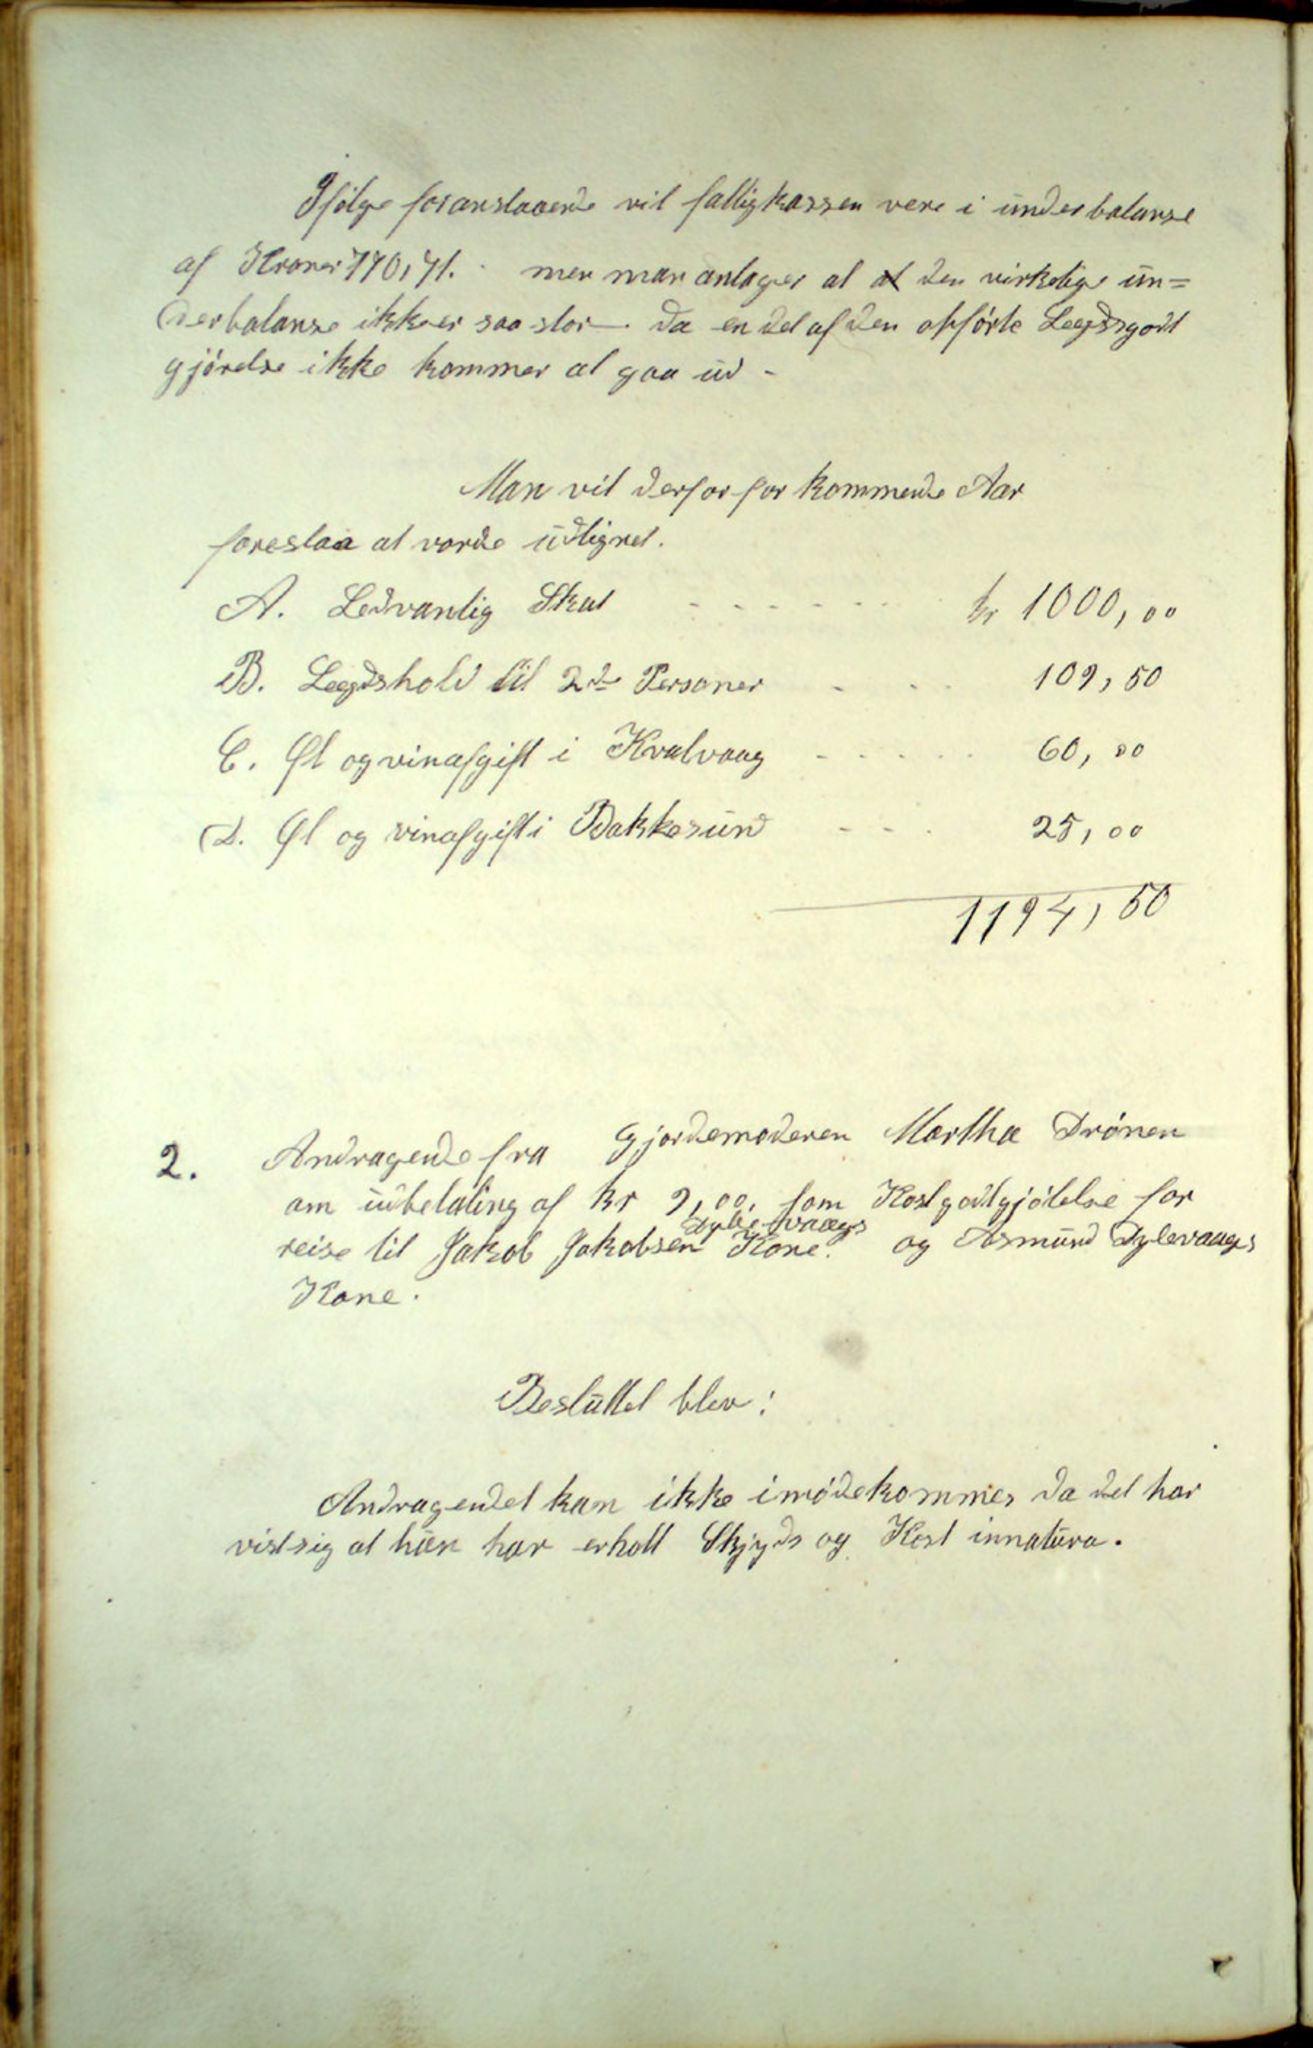 Ifølge foranstaaende vil fattigkassen vere i underbalanse
af Kroner 770,71. men man antager at at den virkelige un=
derbalanse ikke er saa stor da en del af den opførte Legdsgodt
gjørelse ikke kommer at gaa ud -
Man vil derfor for kommende Aar
foreslaa at vorde udlignet.
A. Sedvanlig Skat - - - - - - kr 1000,00
B. Legdshold til 2de Personer - - - 109,50
C. Øl og vinafgift i Kvalvaag - - - - - 60,00
D. Øl og vinafgift i Bakkesund - - - 25,00
1194,50
2. Andragende fra Gjordemoderen Martha Drønen
om udbetaling af kr 9,00, som Kostgodtgjølelse for
reise til Jakob Jakobsen Dyblevaags Kone. og Asmund Dylevaags
Kone.
Besluttet blev:
Andragendet kan ikke imødekommes da det har
vist sig at hun har erholt Skyds og Kost innatura.